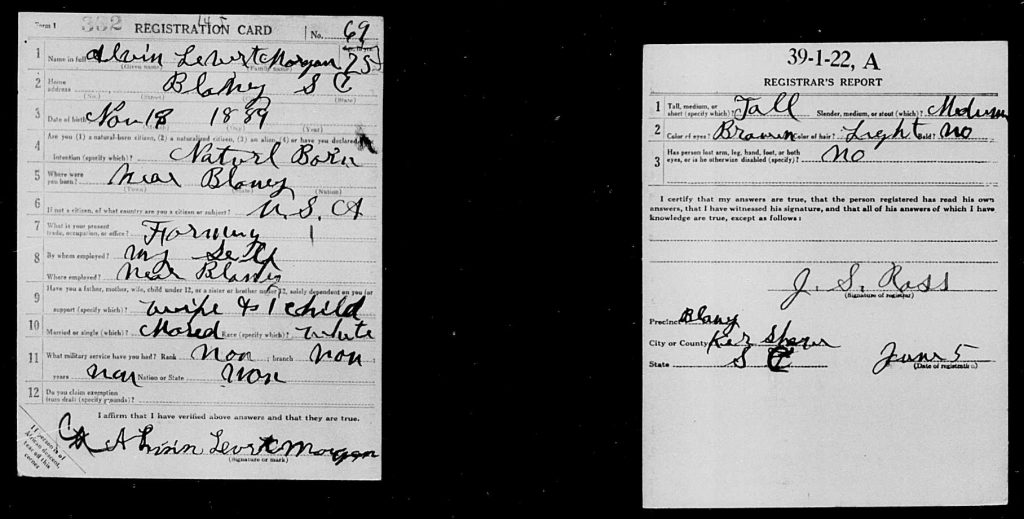 Form 1 332 REGISTRATION CARD No. 69
1 Name in full Alvin Levert Morgan 25
(Given name) (Family name) Age, in yrs.
2 Home address Blaney S C
(No.) (Street) (State)
3 Date of birth Nov 18 1889
(Day) (Year)
4 Are you (1) a natural-born citizen, (2) a naturalized citizen, (3) an alien, (4) or have you declared
Intention (specify which)? Naturl Born
5 Where were you born? Near Blaney
(Town) (State) (Nation)
6 If not a citizen, of what country are you a citizen or subject? U. S. A
7 What is your present trade, occupation, or office? Farming
8 By whom employed? My Self
Where employed? Near Blaney
9 Have you a father, mother, wife, child under 12, or a sister or brother under 12, solely dependent on you for
support (specify which)? wife & 1 child
10 Married or single (which)? Mared Race (specify which)? White
11 What military service have you had? Rank Non ; branch Non ;
years Non Nation or State Non
12 Do you claim exemption from draft (specify grounds)?
I affirm that I have verified above answers and that they are true.
Levert Morgan
(Signature or mark)
If person is of
African descent,
tear off this
corner
39-1-22, A
REGISTRAR'S REPORT
1 Tall, medium, or short (specify which)? Tall Slender, medium, or stout (which)? Medium
2 Color of eyes? Brown Color of hair? Light Bald? No
3 Has person lost arm, leg, hand, foot, or both eyes, or is he otherwise disabled (specify)? No
I certify that my answers are true, that the person registered has read his own
answers, that I have witnessed his signature, and that all of his answers of which I have
knowledge are true, except as follows:
J. S. Ross
(Signature of registrar)
Precinct Blany
City or County Ker
State S C June 5
(Date of registration)